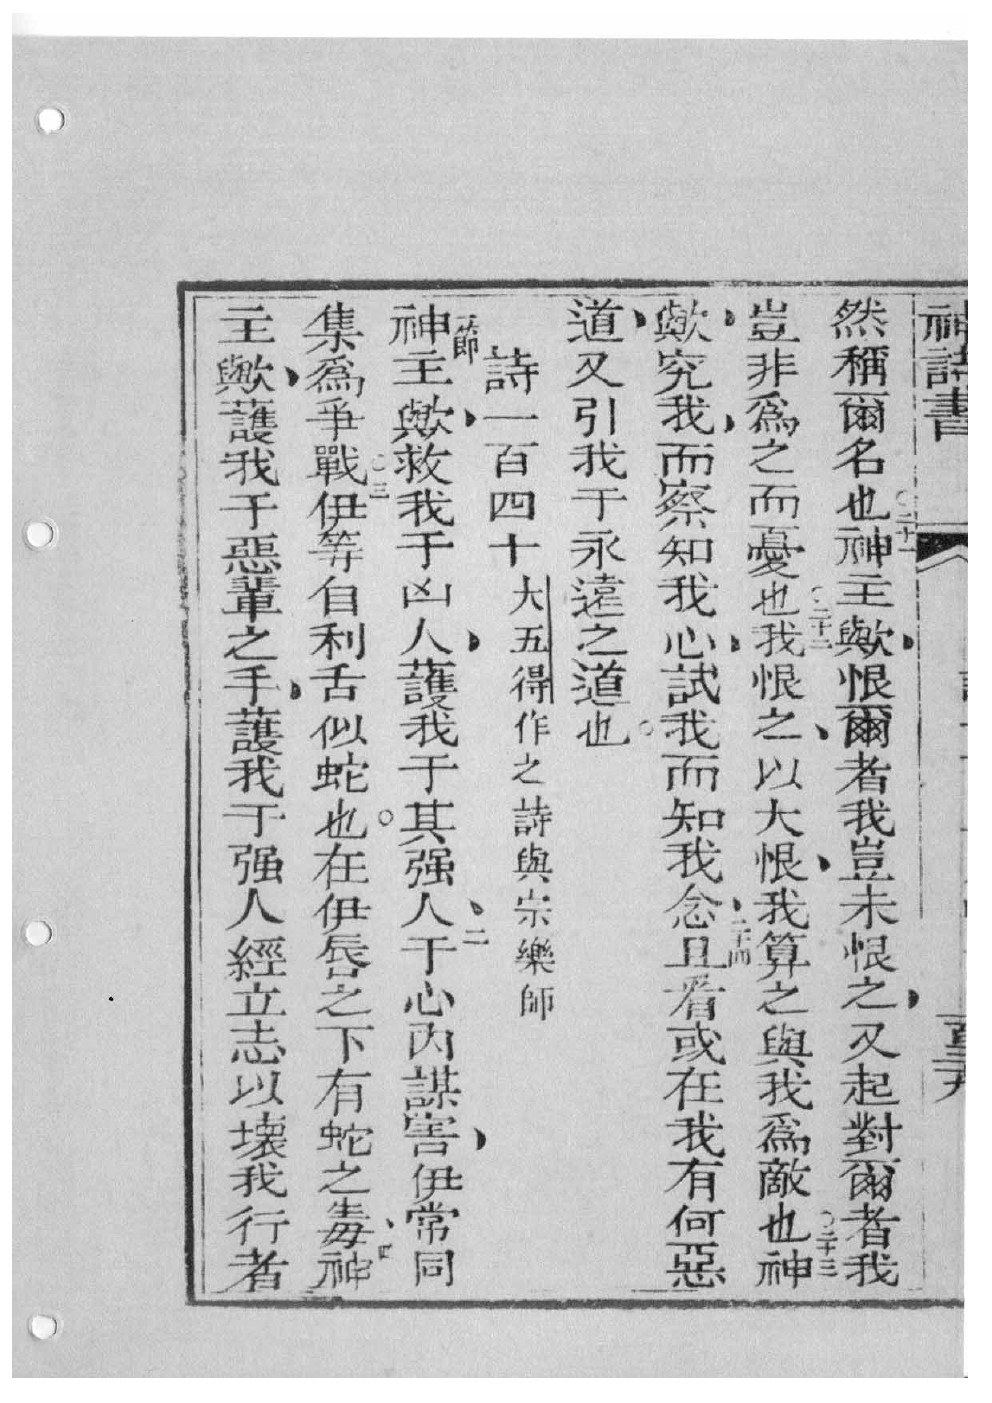 神詩書
然稱爾名也○二十一神主歟恨爾者我豈未恨之又起對爾者我
豈非爲之而憂也○二十二我恨之以大恨我算之與我爲敵也○二十三神
歟究我而察知我心試我而知我念二十四且看或在我有何惡
道又引我于永遠之道也○
詩一百四十大五得作之詩與宗樂師
一節神主歟救我于凶人護我于其强人二于心內謀害伊常同
集爲爭戰○三伊等自利舌似蛇也○在伊唇之下有蛇之毒四神
主歟護我于惡輩之手護我于强人經立志以壞我行者